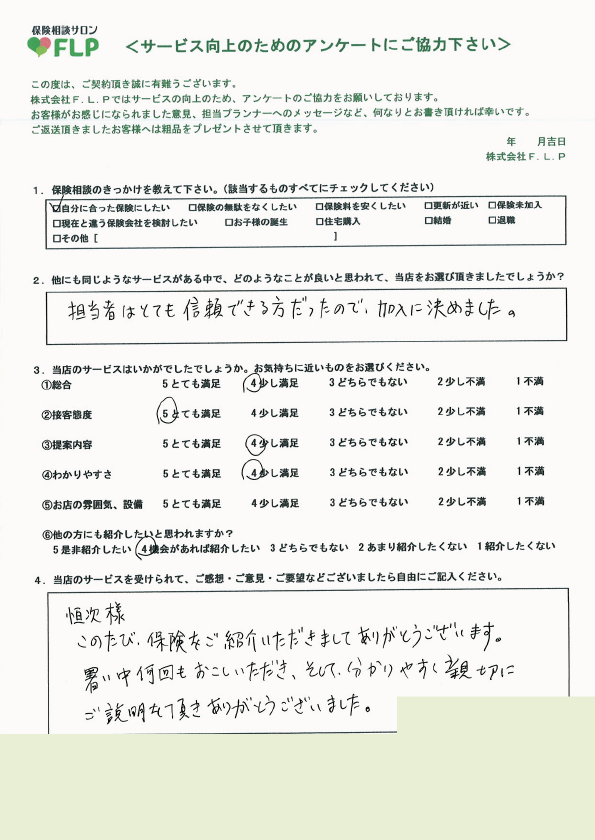 保険相談サロン
FLP
＜サービス向上のためのアンケートにご協力下さい＞
この度は、ご契約頂き誠に有難うございます。
株式会社Ｆ.Ｌ.Ｐではサービスの向上のため、アンケートのご協力をお願いしております。
お客様がお感じになられました意見、担当プランナーへのメッセージなど、何なりとお書き頂ければ幸いです。
ご返送頂きましたお客様へは粗品をプレゼントさせて頂きます。
年　　月吉日
株式会社Ｆ.Ｌ.Ｐ
１．保険相談のきっかけを教えて下さい。（該当するものすべてにチェックしてください）
☑自分に合った保険にしたい　□保険の無駄をなくしたい　□保険料を安くしたい　□更新が近い　□保険未加入
□現在と違う保険会社を検討したい　□お子様の誕生　□住宅購入　□結婚　□退職
□その他［　　　］
２．他にも同じようなサービスがある中で、どのようなことが良いと思われて、当店をお選び頂きましたでしょうか？
担当者はとても信頼できる方だったので、加入に決めました。
３．当店のサービスはいかがでしたでしょうか。お気持ちに近いものをお選びください。
①総合　５とても満足　４少し満足　３どちらでもない　２少し不満　１不満
②接客態度　５とても満足　４少し満足　３どちらでもない　２少し不満　１不満
③提案内容　５とても満足　４少し満足　３どちらでもない　２少し不満　１不満
④わかりやすさ　５とても満足　４少し満足　３どちらでもない　２少し不満　１不満
⑤お店の雰囲気、設備　５とても満足　４少し満足　３どちらでもない　２少し不満　１不満
⑥他の方にも紹介したいと思われますか？
５是非紹介したい　４機会があれば紹介したい　３どちらでもない　２あまり紹介したくない　１紹介したくない
４．当店のサービスを受けられて、ご感想・ご意見・ご要望などございましたら自由にご記入ください。
恒次様
このたび、保険をご紹介いただきましてありがとうございます。
暑い中何回もおこしいただき、そして、分かりやすく親切に
ご説明をして頂きありがとうございました。